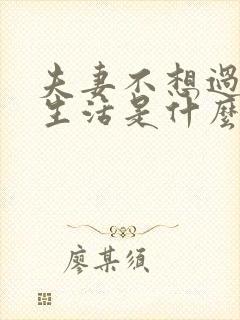 夫妻不想過
生活是什麼
廖某須